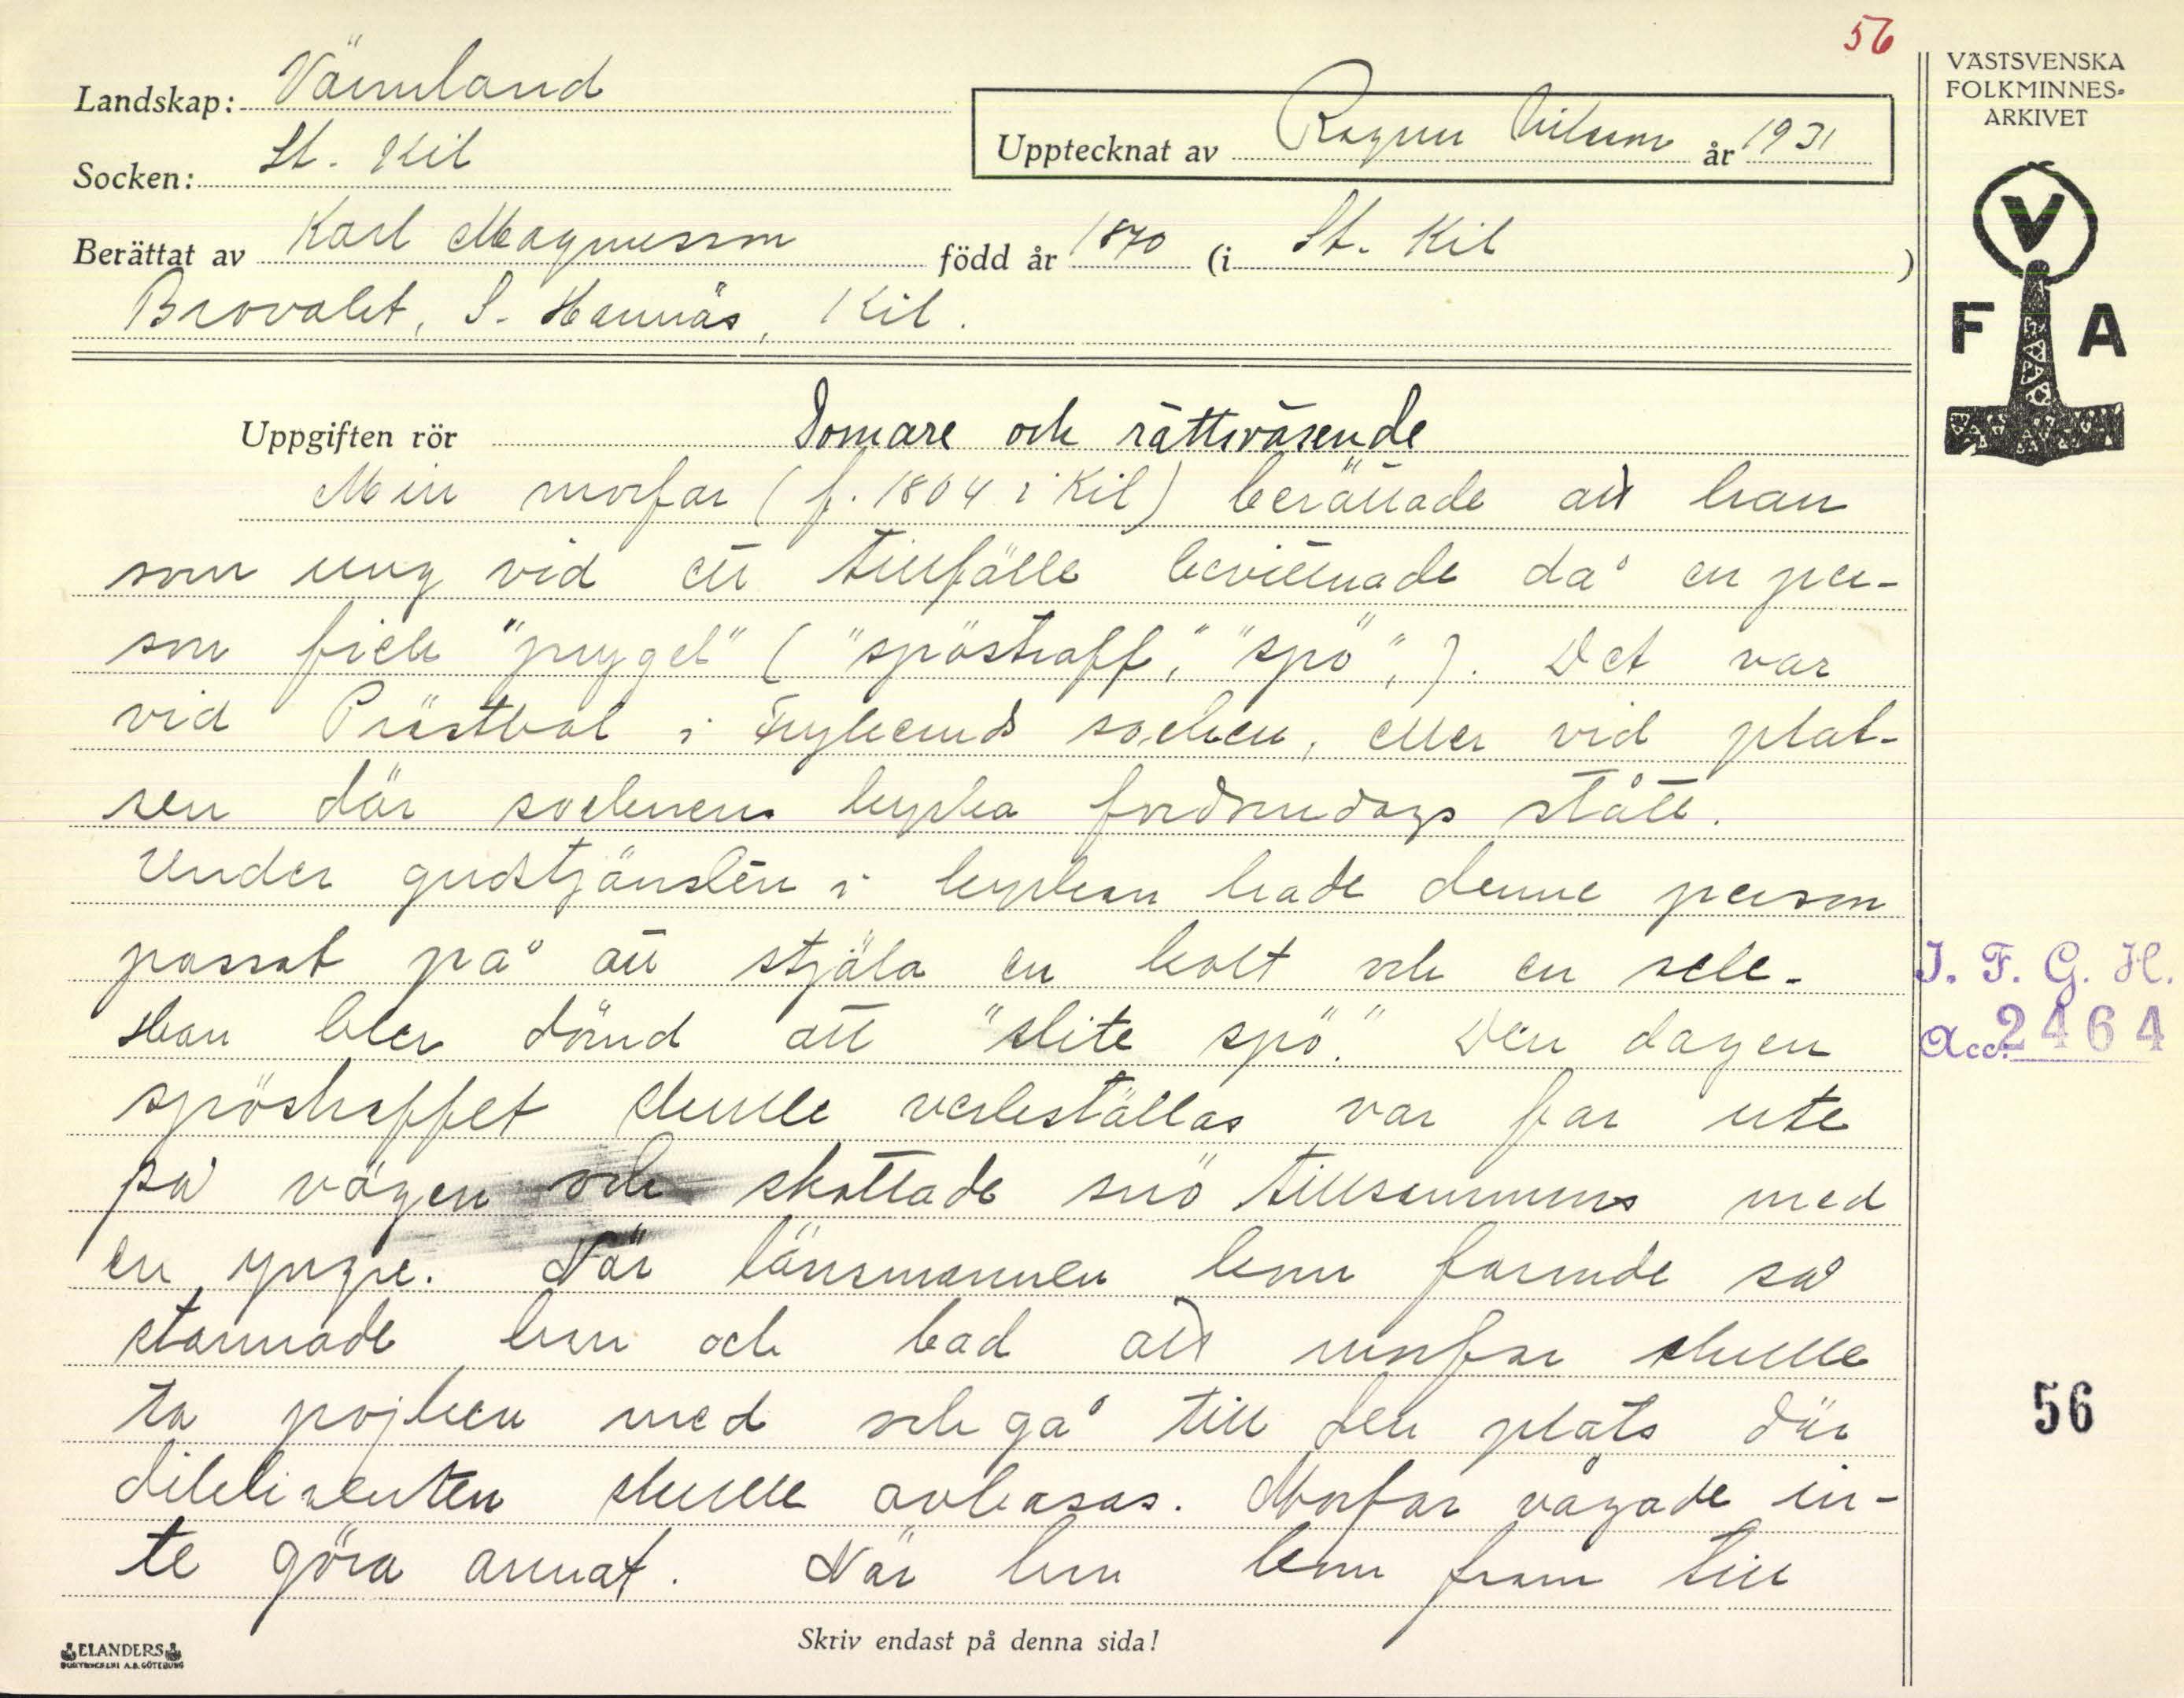 56
Landskap: Värmland
Socken: St. Kil
Upptecknat av Ragnar Nilsson år 1931
Berättat av Karl Magnusson född år 1870 (i St. Kil)
Brovalet, S. Hannäs, Kil.
VÄSTSVENSKA
FOLKMINNES-
ARKIVET
V
F A
Uppgiften rör Domare och rättsväsende
Min morfar (f. 1804 i Kil) berättade att han
som ung vid ett tillfälle bevittnade då en per-
son fick "prygel" ("spöstraff", "spö",). Det var
vid Prästbol i Frykeruds socken, eller vid plat-
sen där socknens kyrka fordomdags stått.
Under gudstjänsten i kyrkan hade denne person
passat på att stjäla en kolt och en sele.
Han blev dömd att "slite spö." Den dagen
spöstraffet skulle verkställas var far ute
på vägen och skottade snö tillsammans med
en yngre. När länsmannen kom farande så
stannade han och bad att morfar skulle
ta pojken med och gå till den plats där
delikventen skulle avbasas. Morfar vågade in-
te göra annat. När han kom fram till
J. F. G. H.
Acc. 2464
56
Skriv endast på denna sida!
ELANDERS
BOKTRYCKERI A.B. GÖTEBORG